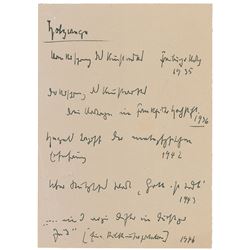 Holzwege
Vom Ursprung des Kunstwerks Freiburg
1935
Der Ursprung des Kunstwerks
drei Vorträge in Frankfurt Hochstift
1936
Hegels Begriff der
Erfahrung 1942
Nietzsches Wort „Gott ist tot"
1943
„... und wozu Dichter in dürftiger
Zeit?" 1946